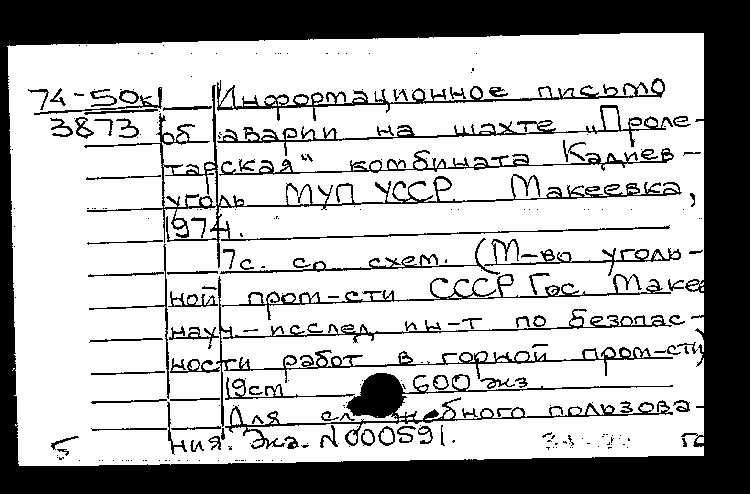 74-50к Информационное письмо
3873 об аварии на шахте „Проле-
тарская“ комбината Кадиев-
уголь МУП УССР. Макеевка,
1974.
7с. со схем. (М-во уголь-
ной пром-сти СССР. Гос. Макее
науч.-исслед. ин-т по безопас-
ности работ в горной пром-сти)
19см 600 экз.
Для служебного пользова-
ния. Экз. N000591.
5